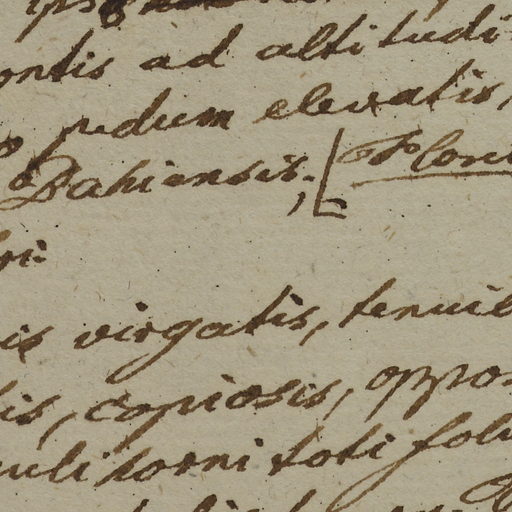 ontis ad altitudi-
pedum elevatis,
Bahiensis; [Flori
ri-
is virgatis, tenuib
is, copiosis, oppo-
uli torni toti foli